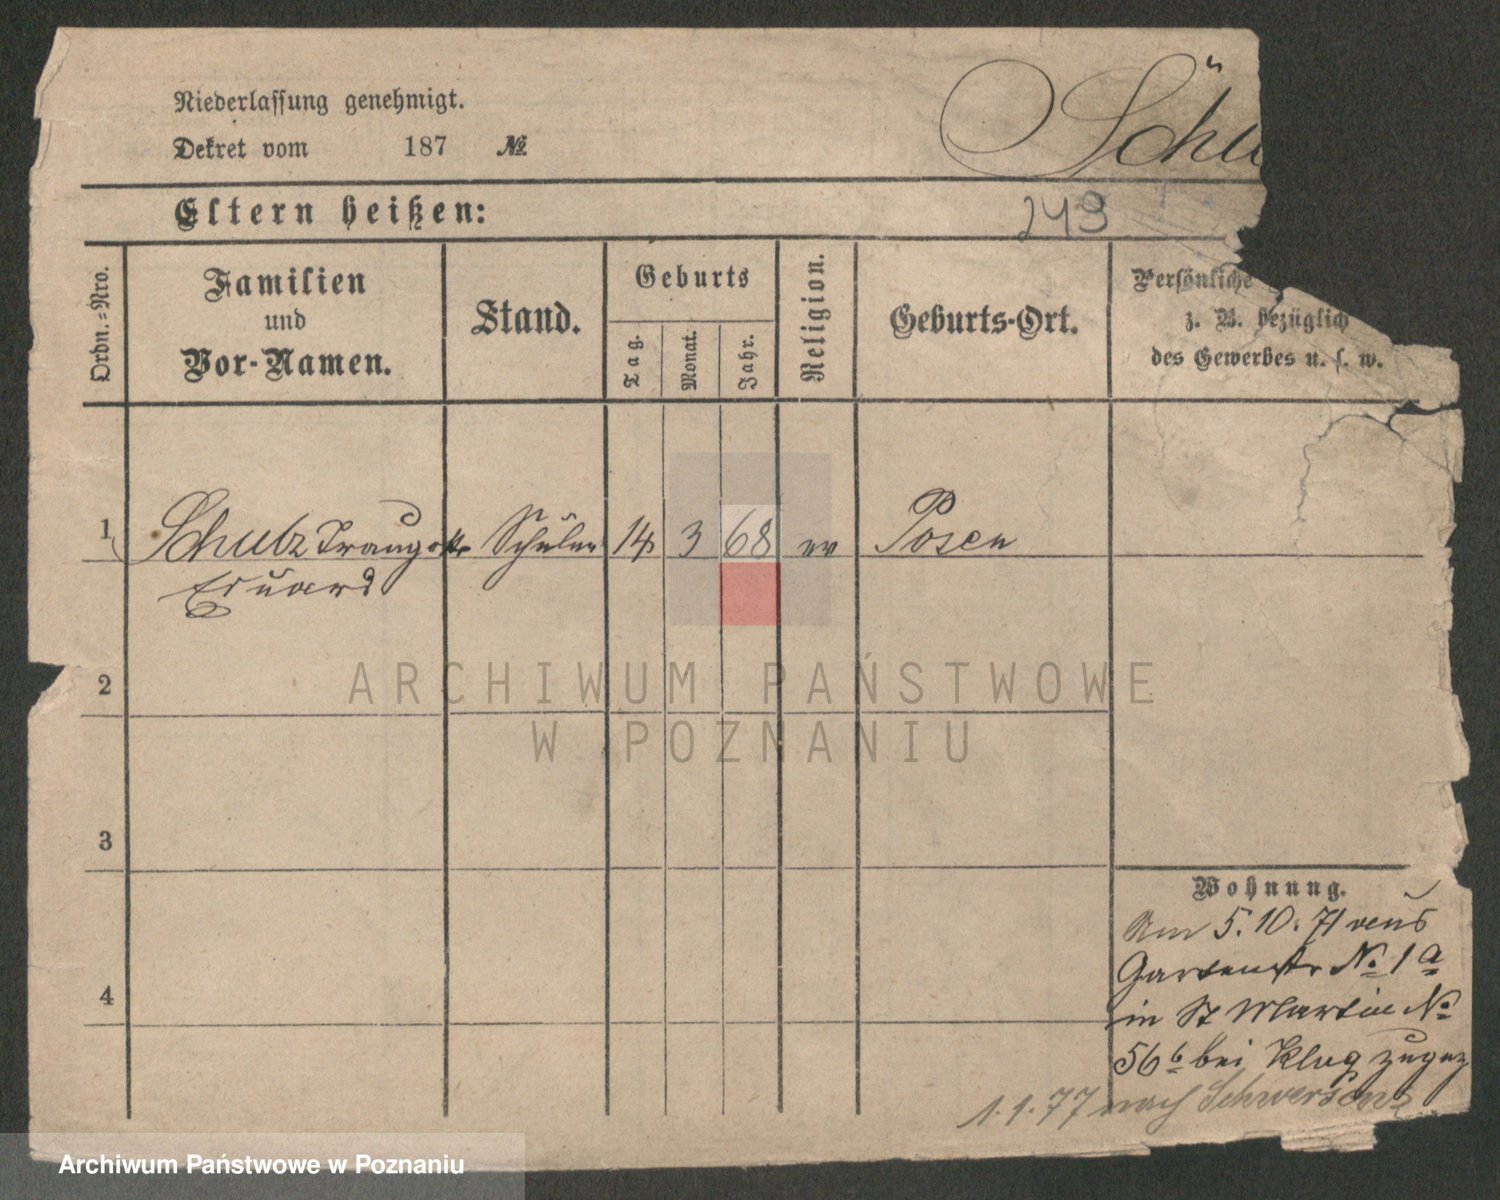 Niederlassung genehmigt.
Schu
Dekret vom 187 №
Eltern heißen:
249
Ordn.-Nro.
Familien
und
Vor-Namen.
Stand.
Geburts
Tag.
Monat.
Jahr.
Religion.
Geburts-Ort.
Persönliche
z. B. bezüglich
des Gewerbes u. s. w.
1 Schulz Traugott Schüler 14 3 68 ev Posen
Eduard
2
ARCHIWUM PAŃSTWOWE
W POZNANIU
3
Wohnung.
4
5. 10. 71
Gartenstr № 1 a
in St Martin №
56 b bei Klug zugez
1. 1. 77 nach Schwersenz
Archiwum Państwowe w Poznaniu